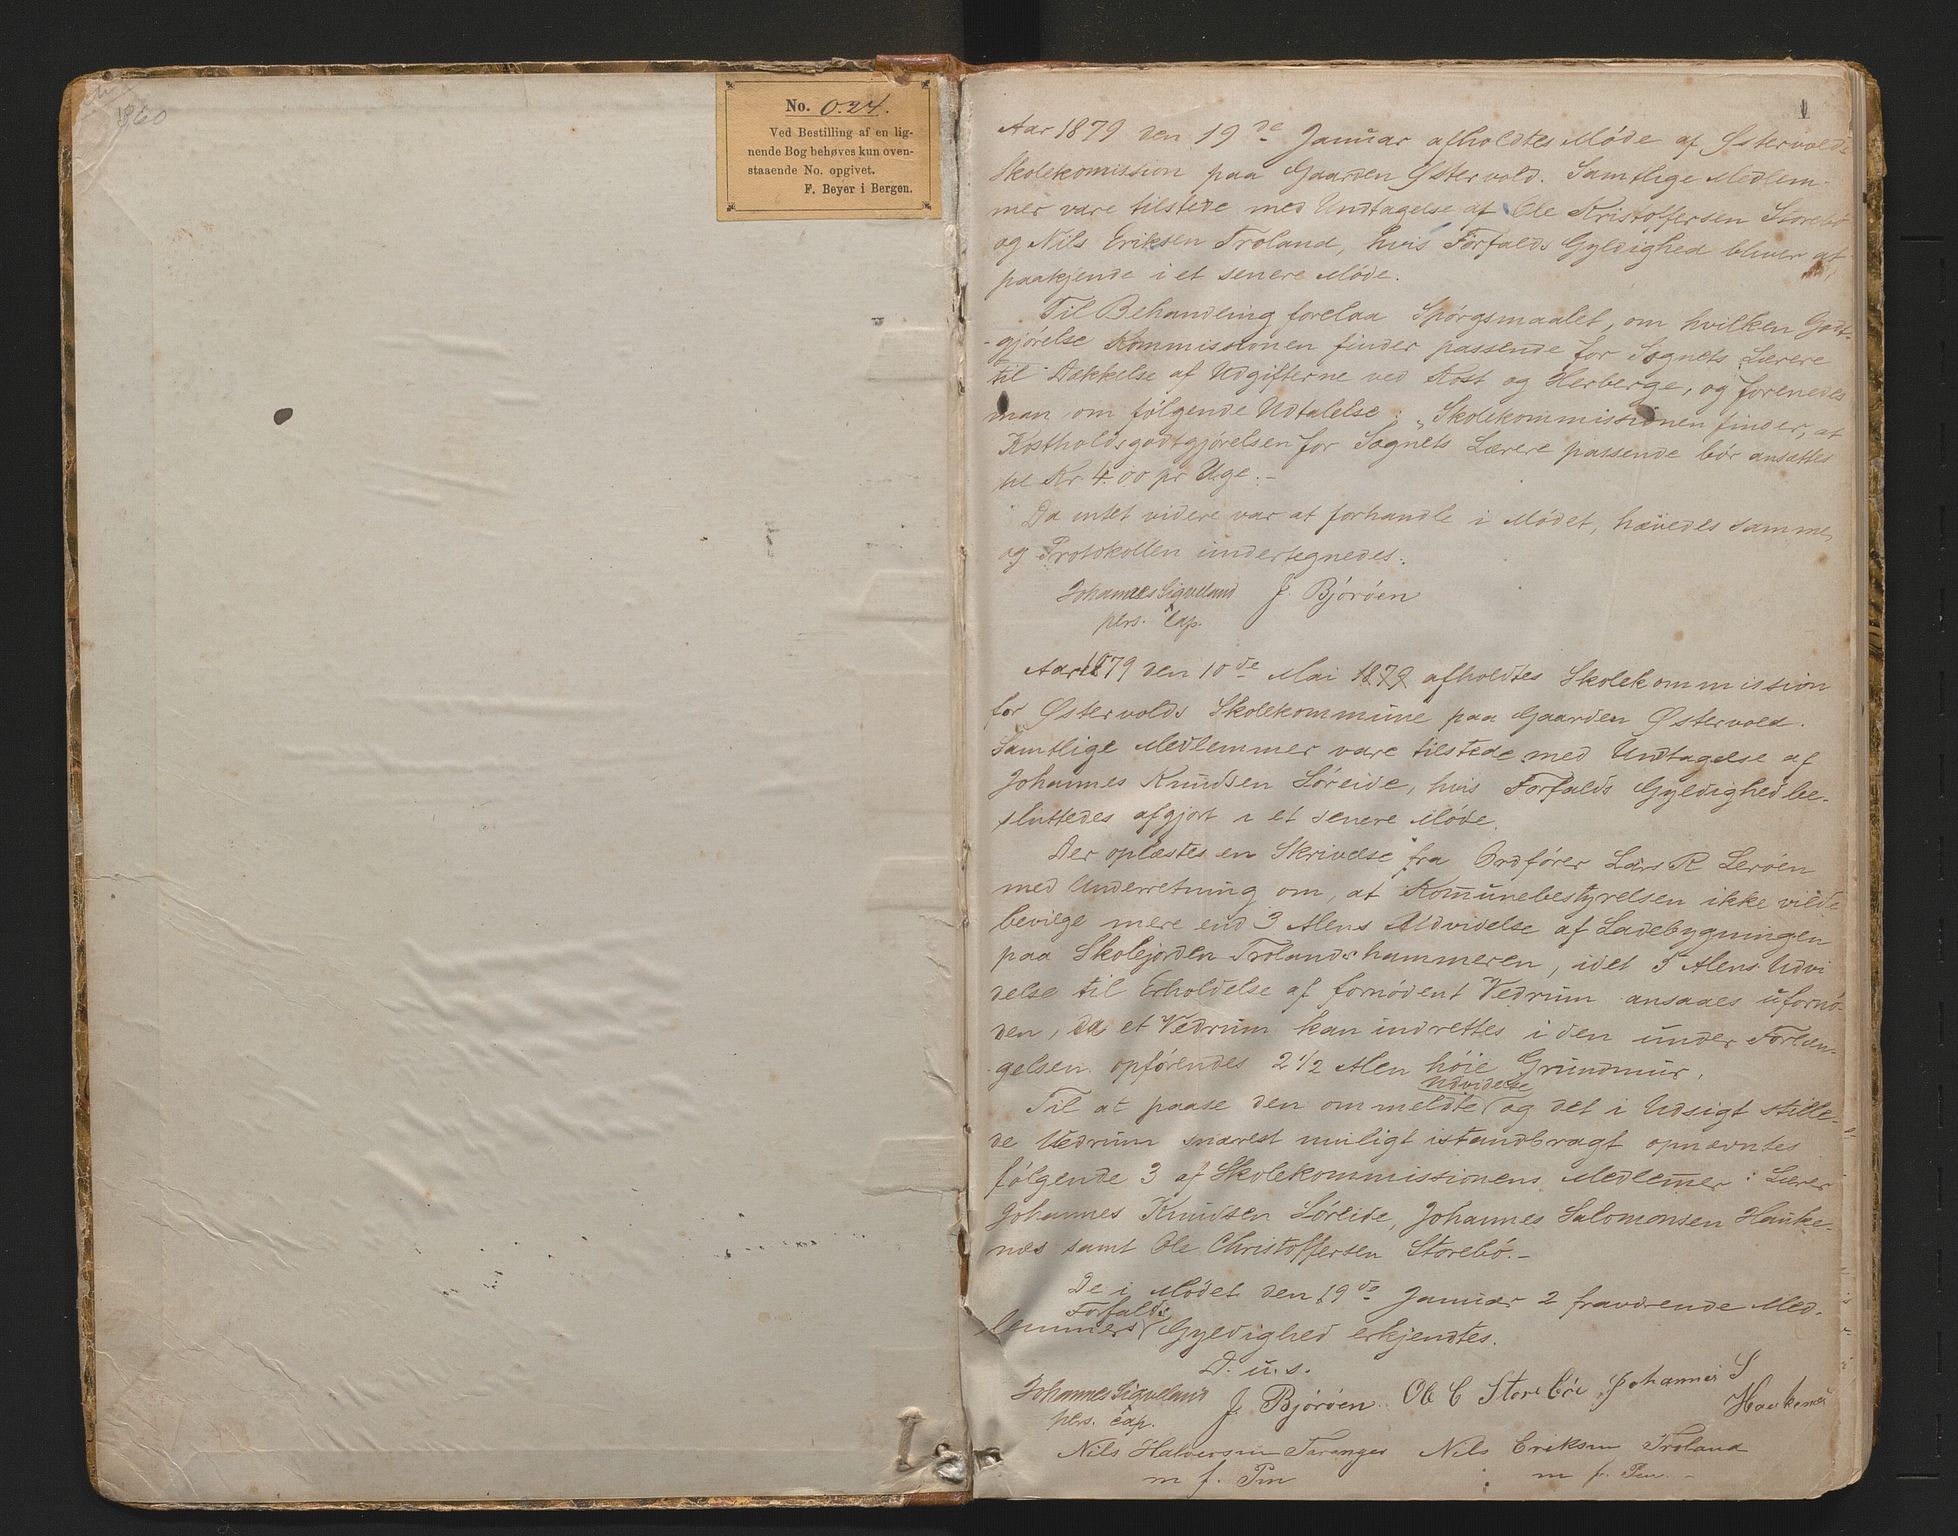 1860
No. 024.
Ved Bestilling af en lig-
nende Bog behøves kun oven-
staaende No. opgivet.
F. Beyer i Bergen.
1
Aar 1879 den 19de Januar afholdtes Møde af Østervolds
Skolekomission paa Gaarden Østervold. Samtlige Medlem-
mer vare tilstede med Undtagelse af Ole Kristoffersen Storebø
og Nils Eriksen Troland, hvis Forfalds Gyldighed bliver at
paakjende i et senere Møde.
Til Behandling forelaa Spørgsmaalet, om hvilken Godt-
gjørelse Kommissionen finder passende for Sognets Lærere
til Dækkelse af Udgifterne ved Kost og Herberge, og forenedes
man om følgende Udtalelse: „Skolekommissionen finder, at
Kostholdsgodtgjørelsen for Sognets Lærere passende bør ansættes
til Kr 4.00 pr Uge.-
Da intet videre var at forhandle i Mødet, hævedes samme,
og Protokollen undertegnedes.
Johannes Sigveland J. Bjørøen
pers. Cap.
Aaret 1879 den 10de Mai 1879 afholdtes Skolekommission
for Østervolds Skolekommune paa Gaarden Østervold.
Samtlige Medlemmer vare tilstede med Undtagelse af
Johannes Knudsen Søreide, hvis Forfalds Gyldighed be-
sluttedes afgjort i et senere Møde.
Der oplæstes en Skrivelse fra Ordfører Lars R Lerøen
med Underretning om, at Komunebestyrelsen ikke vilde
bevilge mere end 3 Alens Udvidelse af Ladebygningen
paa Skolejorden Trolandshammeren, idet 5 Alens Udvi
delse til Erholdelse af fornødent Vedrum ansaaes ufornø-
den, da et Vedrum kan indrettes i den under Forlæn-
gelsen opførendes 2 1/2 Alen høie Grundmur.
Udvidelse
Til at paase den ommeldte og det i Udsigt stille-
de Vedrum snarest muligt istandbragt opnævntes
følgende 3 af Skolekommissionens Medlemer: Lærer
Johannes Knudsen Søreide, Johannes Salomonsen Hauke-
næs samt Ole Christoffersen Storebø.-
De i Mødet den 19de Januar 2 fraværende Med-
Forfalds
lemmers Gyldighed erkjendtes.
D. u. s.
Johannes Sigveland J. Bjørøen Ole C Storebøe Johannes S
pers. Cap. Haukenæs
Nils Halversen Taranger Nils Eriksen Troland
m f. Pen m f. Pen